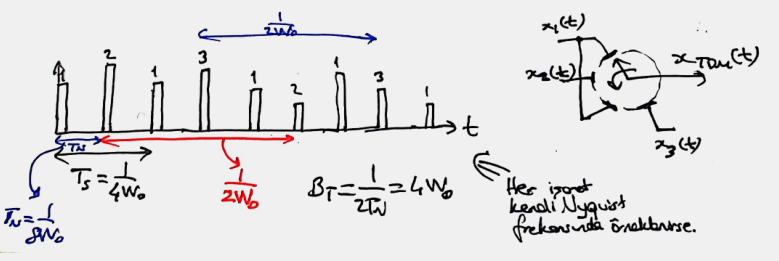 1/2W₀
1 2 1 3 1 2 1 3 1
t
T_N
T_s = 1/4W₀
T_N = 1/8W₀
1/2W₀
B_T = 1/2T_N = 4W₀
x₁(t)
x₂(t)
x_TDM(t)
x₃(t)
Her işaret
kendi Nyquist
frekansında örneklenirse.